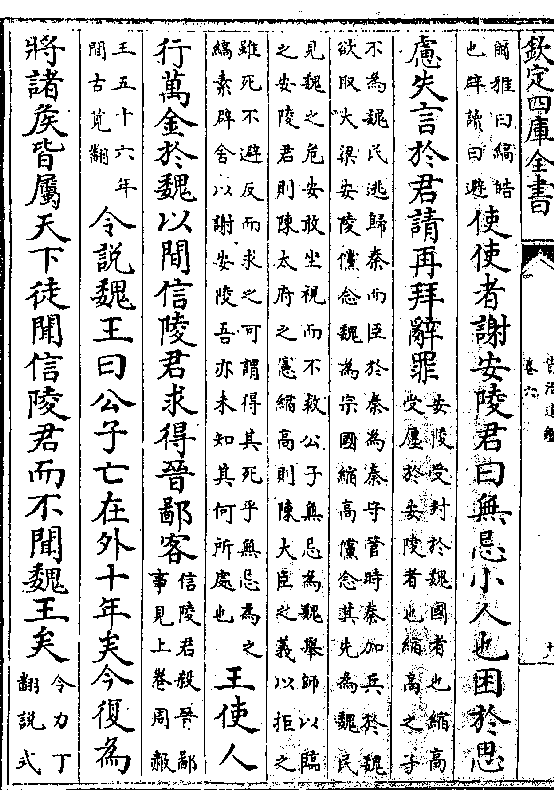 欽定四庫全書
卷六
爾雅曰縞皓
也辟讀曰避
使使者謝安陵君曰無忌小人也困於思
慮失言於君請再拜辭罪
安陵受封於魏國者也縮高
受廛於安陵者也縮高之子
不為魏民逃歸秦而臣於秦為秦守管時秦加兵於魏
欲取大梁安陵儻念魏為宗國縮高儻念其先為魏民
見魏之危安敢坐視而不救公子無忌為魏舉師以臨
之安陵君則陳太府之憲縮高則陳大臣之義以拒之
雖死不避反而求之可謂得其死乎無忌為之
縞素辟舍以謝安陵吾亦未知其何所處也
王使人
行萬金於魏以間信陵君求得晉鄙客
信陵君殺晉鄙
事見上卷周赧
王五十六年
間古莧翻
令説魏王曰公子亡在外十年矣今復為
將諸侯皆屬天下徒聞信陵君而不聞魏王矣
令力丁
翻説式